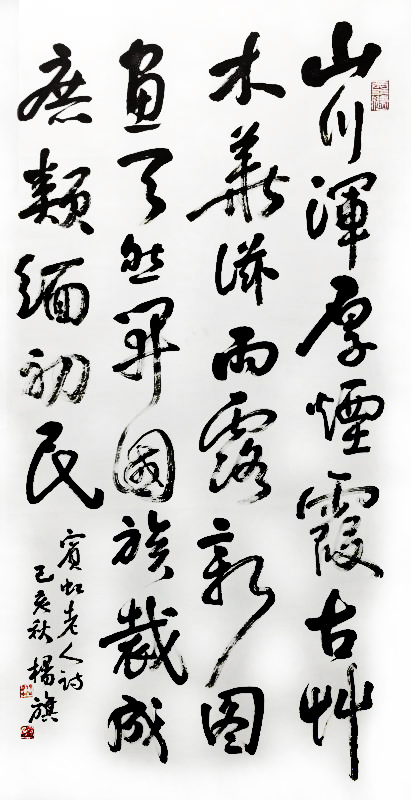 山川渾厚煙霞古艸
木華滋雨露新图
畫天然開國族裁成
庶類緬初民
賓虹老人詩
己亥秋 楊旗